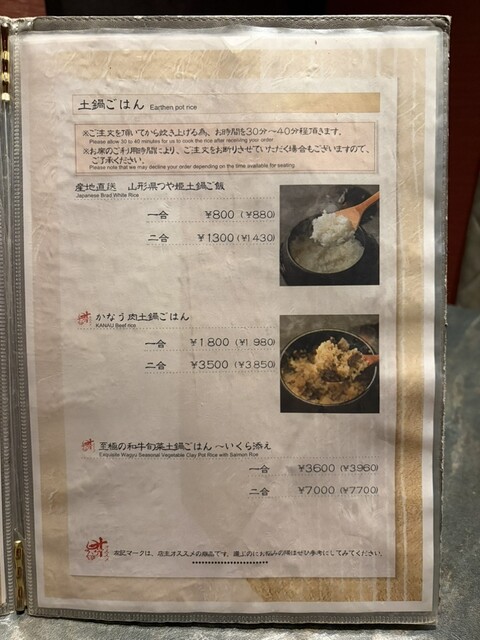 土鍋ごはん Earthen pot rice
※ご注文を頂いてから炊き上げる為、お時間を30分～40分程頂きます。
Please allow 30 to 40 minutes for us to cook the rice after receiving your order
※お席のご利用時間により、ご注文をお断りさせていただく場合もございますので、
ご了承ください。
Please note that we may decline your order depending on the time available for seating.
産地直送 山形県つや姫土鍋ご飯
Japanese Brad White Rice
一合 ¥800 (¥880)
二合 ¥1300 (¥1430)
かなう肉土鍋ごはん
KANAU Beef rice
一合 ¥1800 (¥1980)
二合 ¥3500 (¥3850)
至極の和牛旬菜土鍋ごはん～いくら添え
Exquisite Wagyu Seasonal Vegetable Clay Pot Rice with Salmon Roe
一合 ¥3600 (¥3960)
二合 ¥7000 (¥7700)
左記マークは、店主オススメの商品です。選ぶのにお悩みの際はぜひ参考にしてみてください。